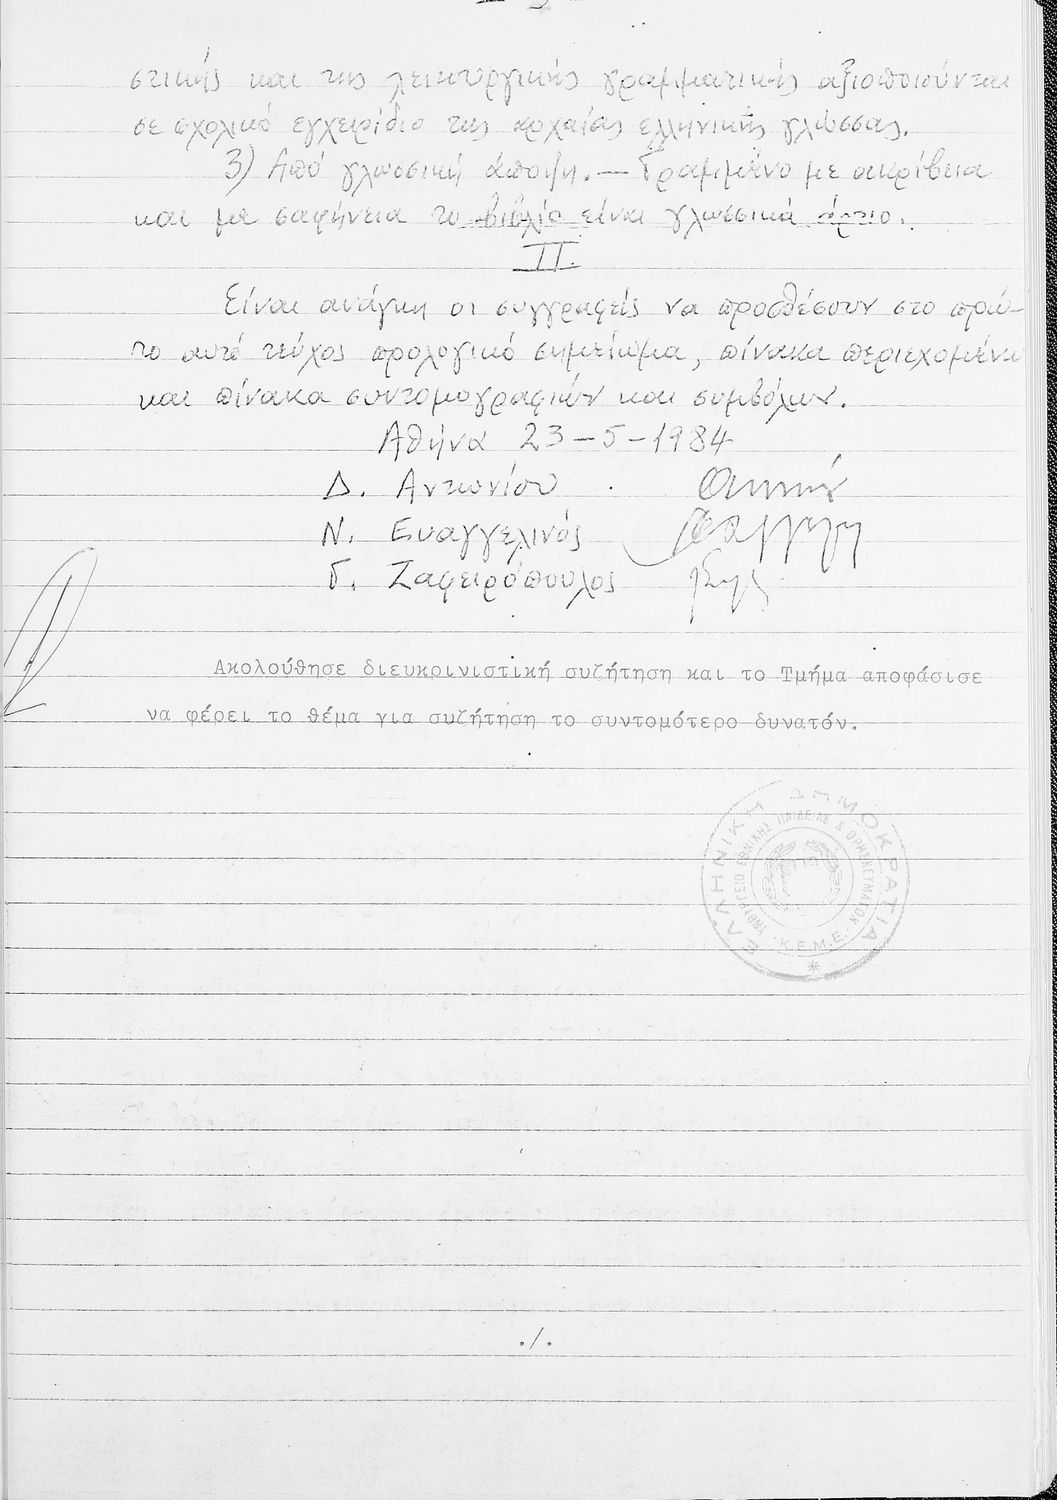 στικής και της λειτουργικής γραμματικής αξιοποιούνται
σε σχολικό εγχειρίδιο της αρχαίας ελληνικής γλώσσας.
3) Από γλωσσική άποψη. — Γραμμένο με ακρίβεια
και με σαφήνεια το βιβλίο είναι γλωσσικά άρτιο.
II.
Είναι ανάγκη οι συγγραφείς να προσθέσουν στο πρώ-
το αυτό τεύχος προλογικό σημείωμα, πίνακα περιεχομένω
και πίνακα συντομογραφιών και συμβόλων.
Αθήνα 23-5-1984
Δ. Αντωνίου
Ν. Ευαγγελινός
Γ. Ζαφειρόπουλος
Ακολούθησε διευκρινιστική συζήτηση και το Τμήμα αποφάσισε
να φέρει το θέμα για συζήτηση το συντομότερο δυνατόν.
ΕΛΛΗΝΙΚΗ ΔΗΜΟΚΡΑΤΙΑ
ΥΠΟΥΡΓΕΙΟ ΕΘΝΙΚΗΣ ΠΑΙΔΕΙΑΣ & ΘΡΗΣΚΕΥΜΑΤΩΝ
Κ.Ε.Μ.Ε.
./.